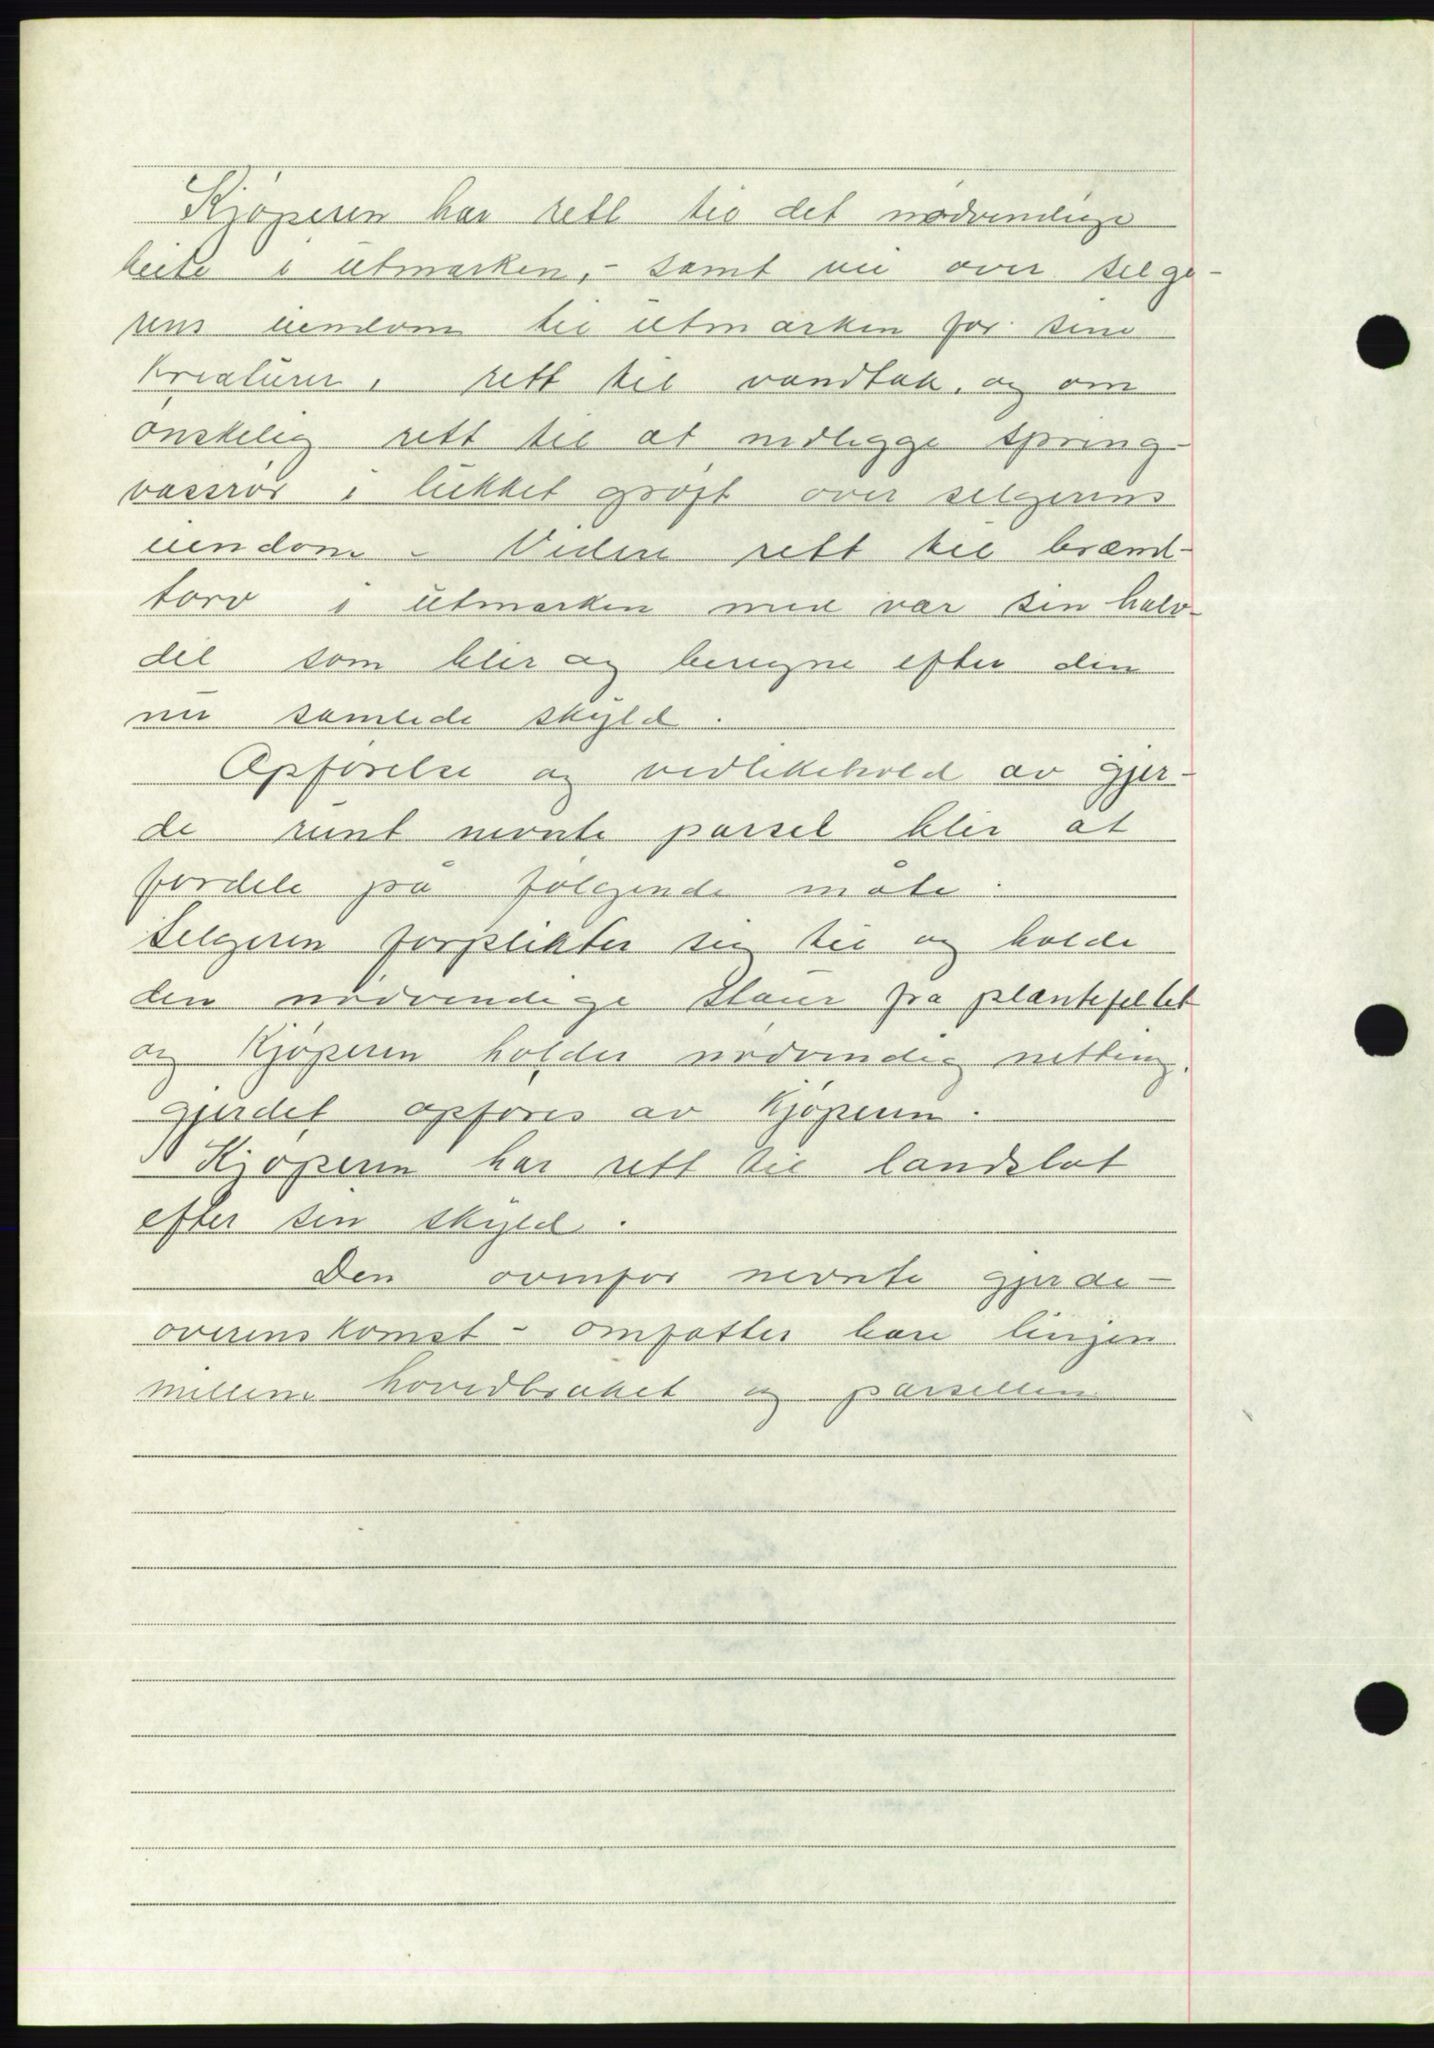 Kjøperen har rett til det nødvendige
beite i utmarken, - samt vei over selge-
rens eiendom til utmarken for sine
kreaturer, rett til vandtak, og om
ønskelig rett til at nedlegge spring-
vassrør i lukket grøft over selgerens
eiendom - Videre rett til brænd-
torv i utmarken med var sin halv-
del som blir og beregne efter den
nu samlede skyld.
Opførelse og vedlikehold av gjer-
de runt nevnte parsel blir at
fordele på følgende måte:
Selgeren forplikter sig til og holde
den nødvendige staur fra plantefeltet
og Kjøperen holder nødvendig netting,
gjerdet opføres av Kjøperen.
Kjøperen har rett til landslot
efter sin skyld.
Den ovenfor nevnte gjerde-
overenskomst - omfatter bare linjen
mellem hovedbruket og parsellen.